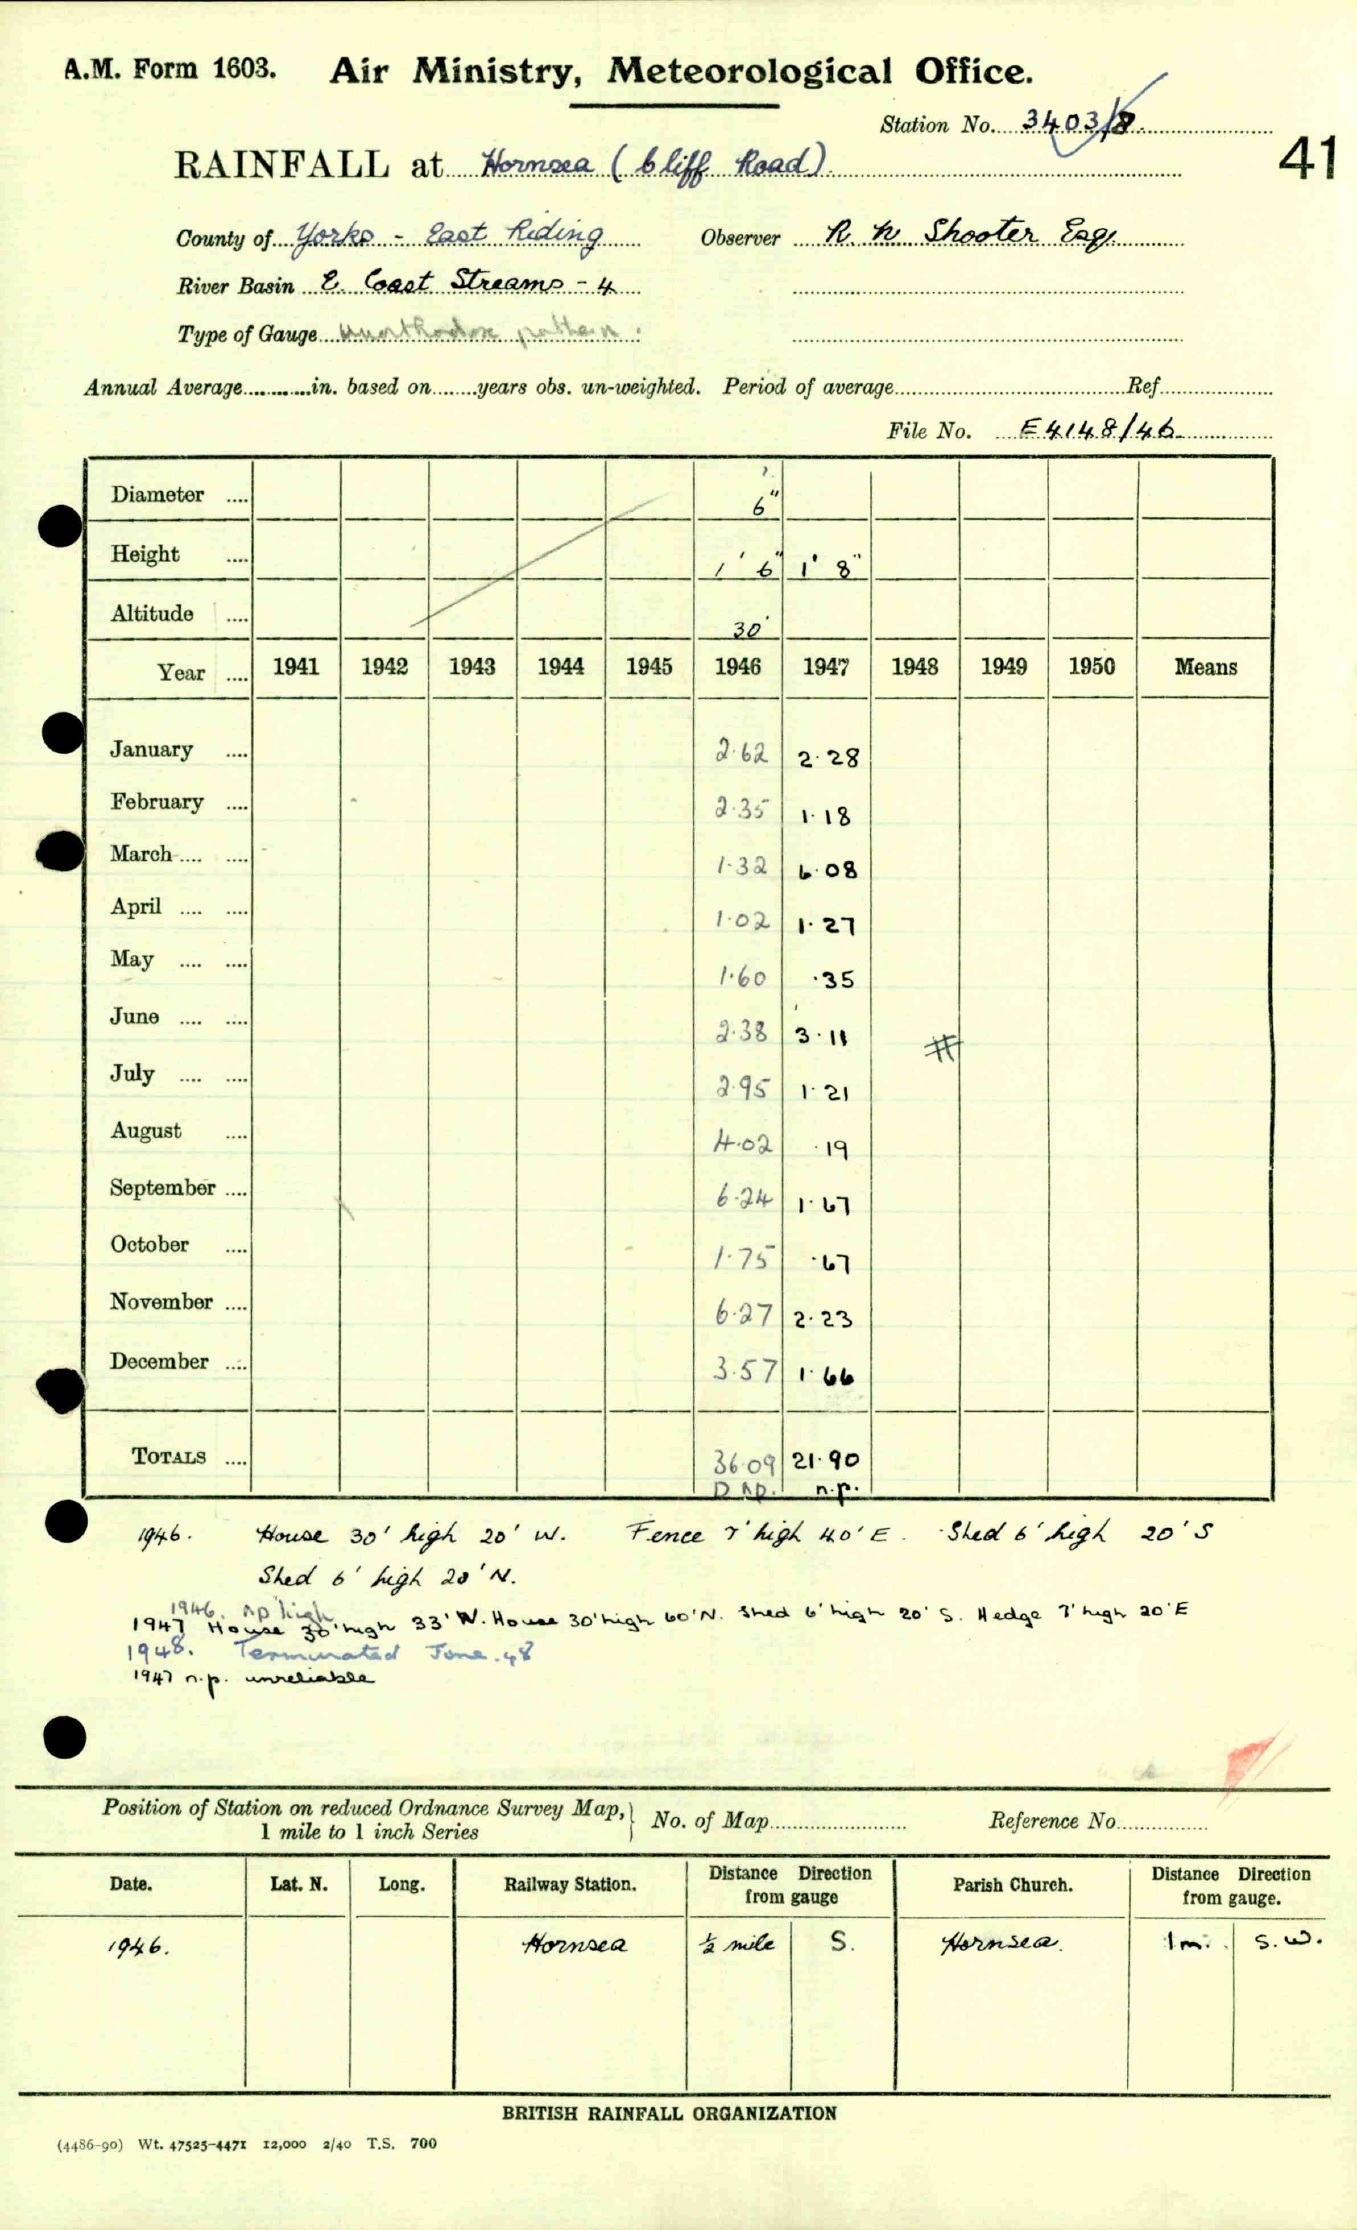 A.M. Form 1603. Air Ministry, Meteorological Office.
Station No. 3403/8
41
RAINFALL at Hornsea (Cliff Road)
County of Yorks - East Riding Observer R N Shooter Esq.
River Basin E. Coast Streams - 4
Type of Gauge unorthodox pattern.
Annual Average............in. based on........years obs. un-weighted. Period of average Ref.
File No. E4148/46
Diameter .... 6"
Height .... 1' 6" 1' 8"
Altitude .... 30'
Year .... 1941 1942 1943 1944 1945 1946 1947 1948 1949 1950 Means
January .... 2.62 2.28
February .... 2.35 1.18
March .... .... 1.32 6.08
April .... .... 1.02 1.27
May .... .... 1.60 .35
June .... .... 2.38 3.11 #
July .... .... 2.95 1.21
August .... 4.02 .19
September .... 6.24 1.67
October .... 1.75 .67
November .... 6.27 2.23
December .... 3.57 1.66
TOTALS .... 36.09 21.90
n.p.
1946. House 30' high 20' W. Fence 7' high 40' E. Shed 6' high 20' S
Shed 6' high 20' N.
1946. np high
1947 House 30' high 33' W. House 30' high 60' N. Shed 6' high 20' S. Hedge 7' high 20' E
1948. Terminated June. 48
1947 n.p. unreliable
Position of Station on reduced Ordnance Survey Map, } No. of Map Reference No.
1 mile to 1 inch Series
Date. Lat. N. Long. Railway Station. Distance Direction from gauge Parish Church. Distance Direction from gauge.
1946. Hornsea ½ mile S. Hornsea. 1m. S.W.
BRITISH RAINFALL ORGANIZATION
(4486-90) Wt. 47525-4471 12,000 2/40 T.S. 700